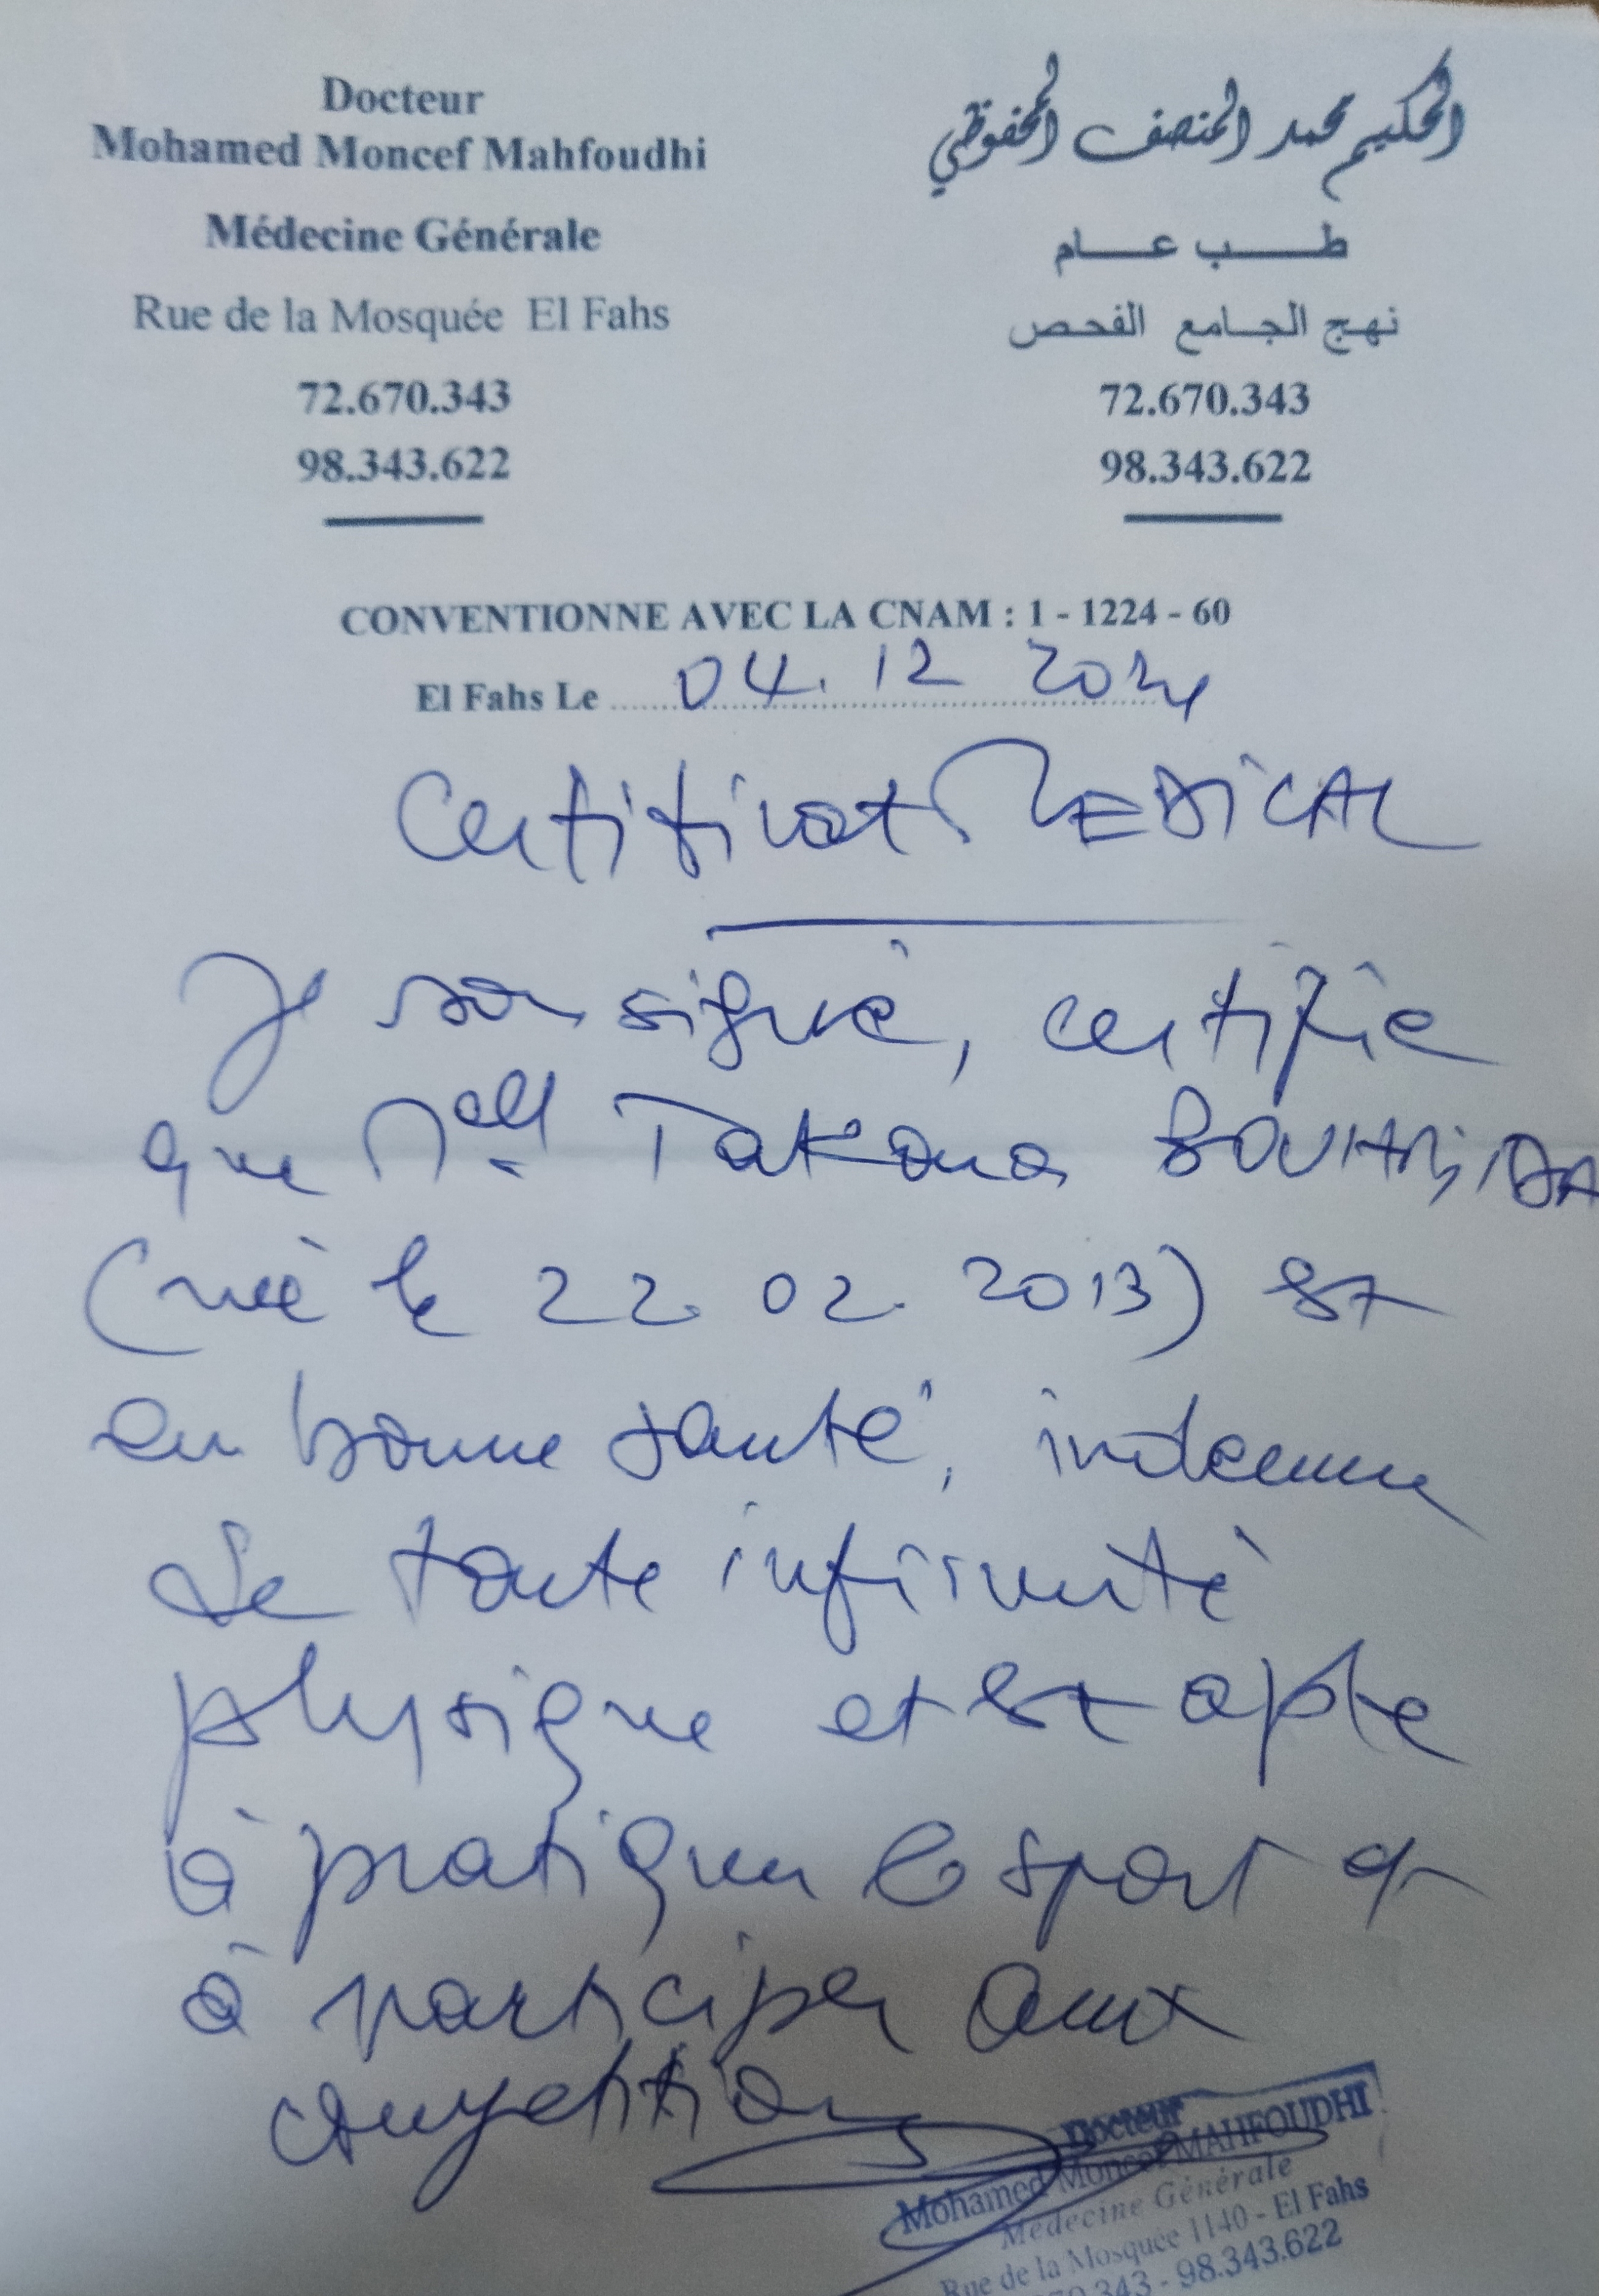 Docteur
Mohamed Moncef Mahfoudhi
Médecine Générale
Rue de la Mosquée El Fahs
72.670.343
98.343.622
الحكيم محمد المنصف المحفوظي
طب عام
نهج الجامع الفحص
72.670.343
98.343.622
CONVENTIONNE AVEC LA CNAM : 1 - 1224 - 60
El Fahs Le 04. 12 2024
Certificat MEDICAL
Je soussigné, certifie
que Melle
(née le 22. 02. 2013) est
en bonne santé, indemne
de toute infirmité
physique et est apte
à pratiquer le sport et
à participer aux
compétitions
Docteur
Mohamed Moncef MAHFOUDHI
Médecine Générale
Rue de la Mosquée 1140 - El Fahs
70.343 - 98.343.622